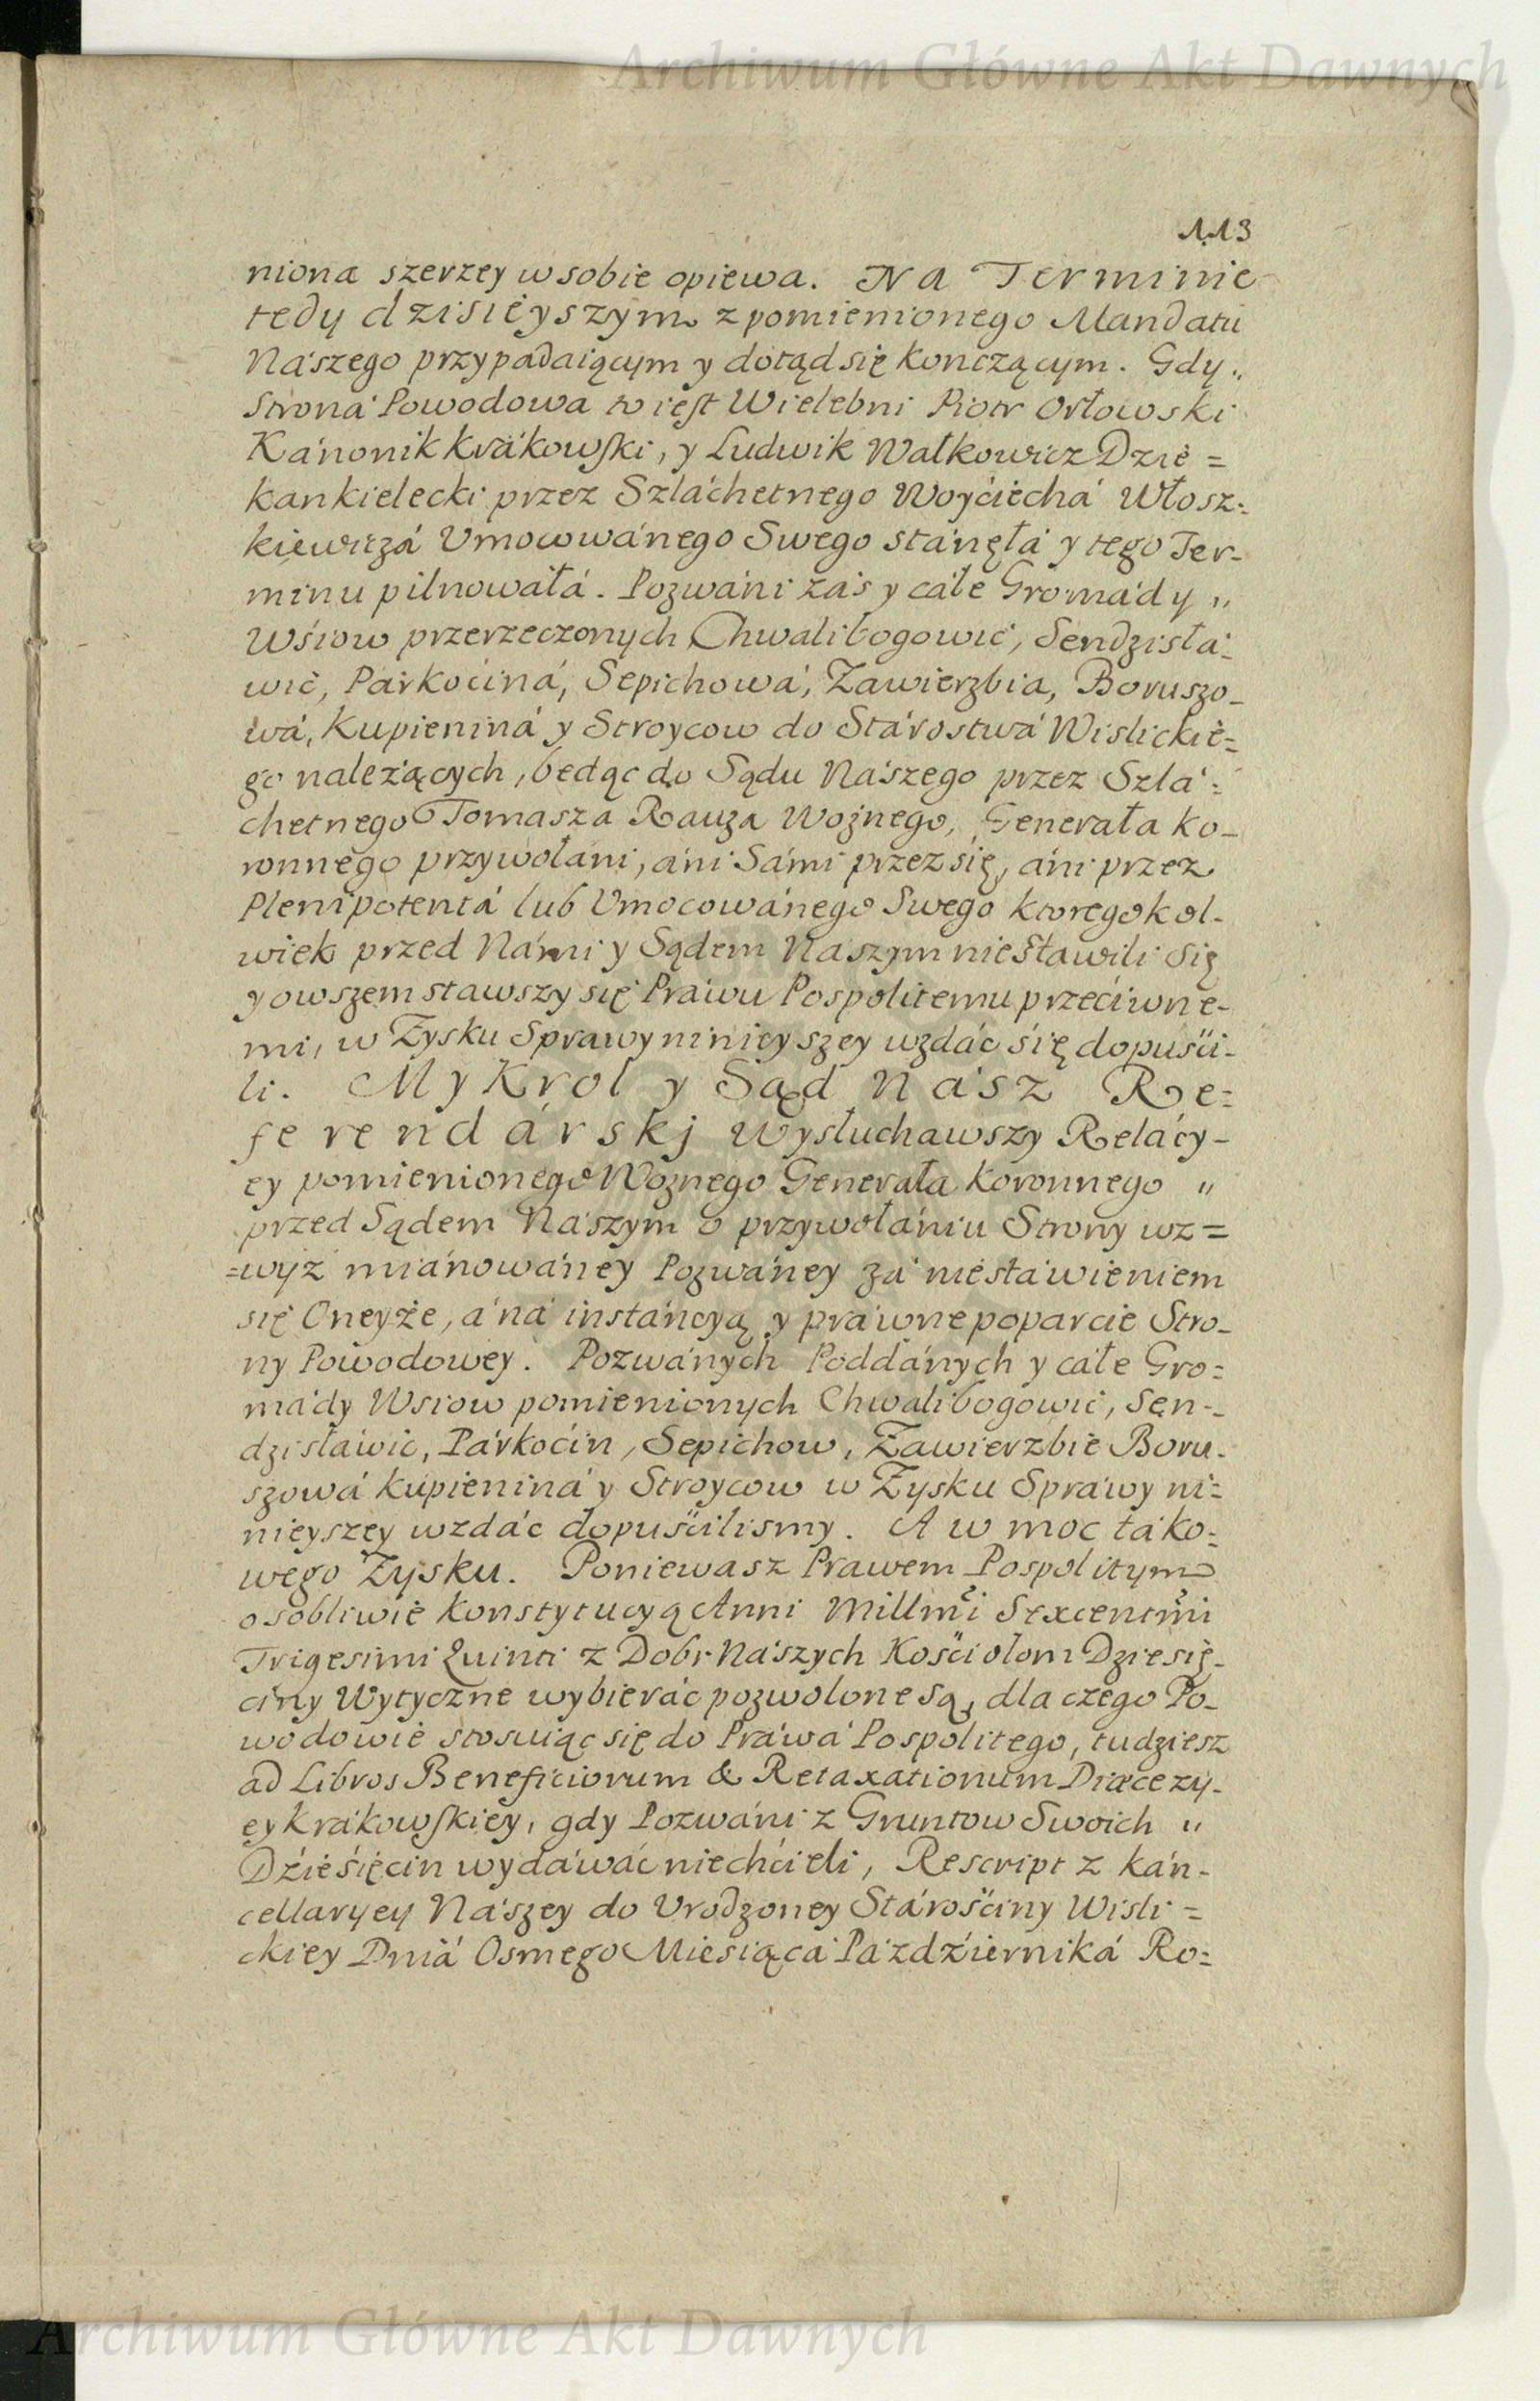 Archiwum Główne Akt Dawnych
113
niona szerzey w sobie opiewa. Na Terminie
tedy dzisieyszym z pomienionego Mandatu
Nászego przypadaiącym y dotąd się konczącym. Gdy „
Strona Powodowa to iest Wielebni Piotr Orłowski
Kánonik krákowski, y Ludwik Wałkowicz Dzie =
kan kielecki przez Szláchetnego Woyciechá Włosz=
kiewiczá Vmocowánego Swego stánęłá y tego Ter-
minu pilnowałá. Pozwáni zás y cáłe Gromády „
Wśiow przerzeczonych Chwalibogowic, Sendzisłá-
wic, Párkociná, Sepichowá, Zawierzbia, Boruszo-
wá, Kupieniná y Stroycow do Stárostwá Wislickie=
go należących, bedąc do Sądu Nászego przez Szlá=
chetnego Tomasza Rauza Woźnego, Generała ko-
ronnego przywołáni, áni Sámi przez się, áni przez
Plenipotentá lub Vmocowánego Swego ktoregokol-
wiek przed Námi y Sądem Naszym nie Stawili się
y owszem stawszy się Práwu Pospolitemu przeciwne-
mi, w Zysku Sprawy ninieyszey wzdác się dopuści-
li. My Krol y Sąd nász Re=
ferendárskj wysłuchawszy Relácy-
ey pomienionego Woznego Generała koronnego „
przed Sądem Nászym o przywołániu Strony wz=
=wyż miánowáney Pozwáney zá niestáwieniem
się Oneyże, á ná instáncyą y práwne poparcie Stro-
ny Powodowey. Pozwánych Poddánych y cáłe Gro=
mády Wsiow pomienionych Chwalibogowic, Sęn-
dzisłáwic, Párkocin, Sepichow, Zawierzbie Boru-
szowá Kupieniná y Stroycow w Zysku Spráwy ni=
nieyszey wzdác dopuścilismy. A w moc táko=
wego Zysku. Poniewasz Prawem Pospolitym
osobliwie Konstytucyą Anni Millmi Sexcentmi
Trigesimi Quinti z Dobr Nászych Kościołom Dziesię-
ciny Wytyczne wybierác pozwolone są, dla czego Po-
wodowie stosuiąc się do Práwá Pospolitego, tudziesz
ad Libros Beneficiorum & Retaxationum Diæcezy-
ey krákowskiey, gdy Pozwáni z Gruntow Swoich „
Dźieśięcin wydáwác niechćieli, Rescript z kán-
cellaryey Nászey do Vrodzoney Stárościny Wisli =
ckiey Dniá Osmego Miesiąca Pázdźierniká Ro=
Archiwum Główne Akt Dawnych